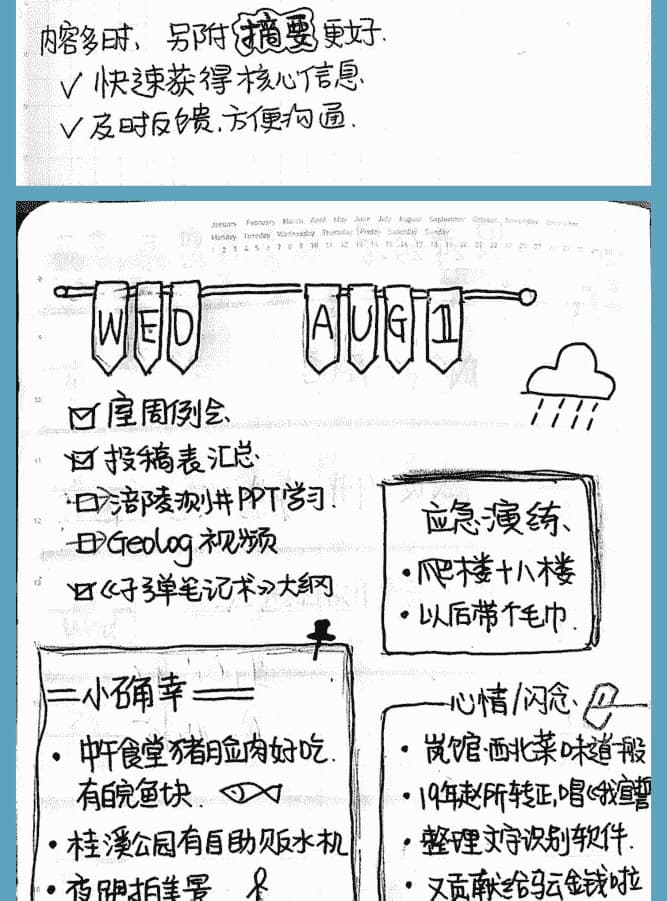 内容多时，另附摘要更好.
✓ 快速获得核心信息.
✓ 及时反馈,方便沟通.
January February March April May June July August September October November December
Monday Tuesday Wednesday Thursday Friday Saturday Sunday
WED AUG 1
室周例会
投稿表汇总
涪陵测井PPT学习.
Geolog 视频
《子弹笔记术》大纲
应急演练
• 爬楼十八楼
• 以后带个毛巾.
小确幸
• 中午食堂猪肉好吃.
有皖鱼块.
• 桂溪公园有自助贩水机
• 夜跑拍美景
心情/闪念
• 岚馆·西北菜味道一般
• 19年赵所转正,唱《我宣誓
• 整理文字识别软件.
• 又贡献给马云金钱啦